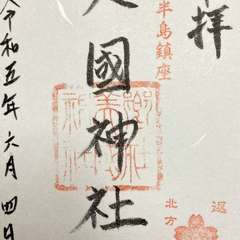 拝
半島鎮座
國神社
令和五年六月四日
北方